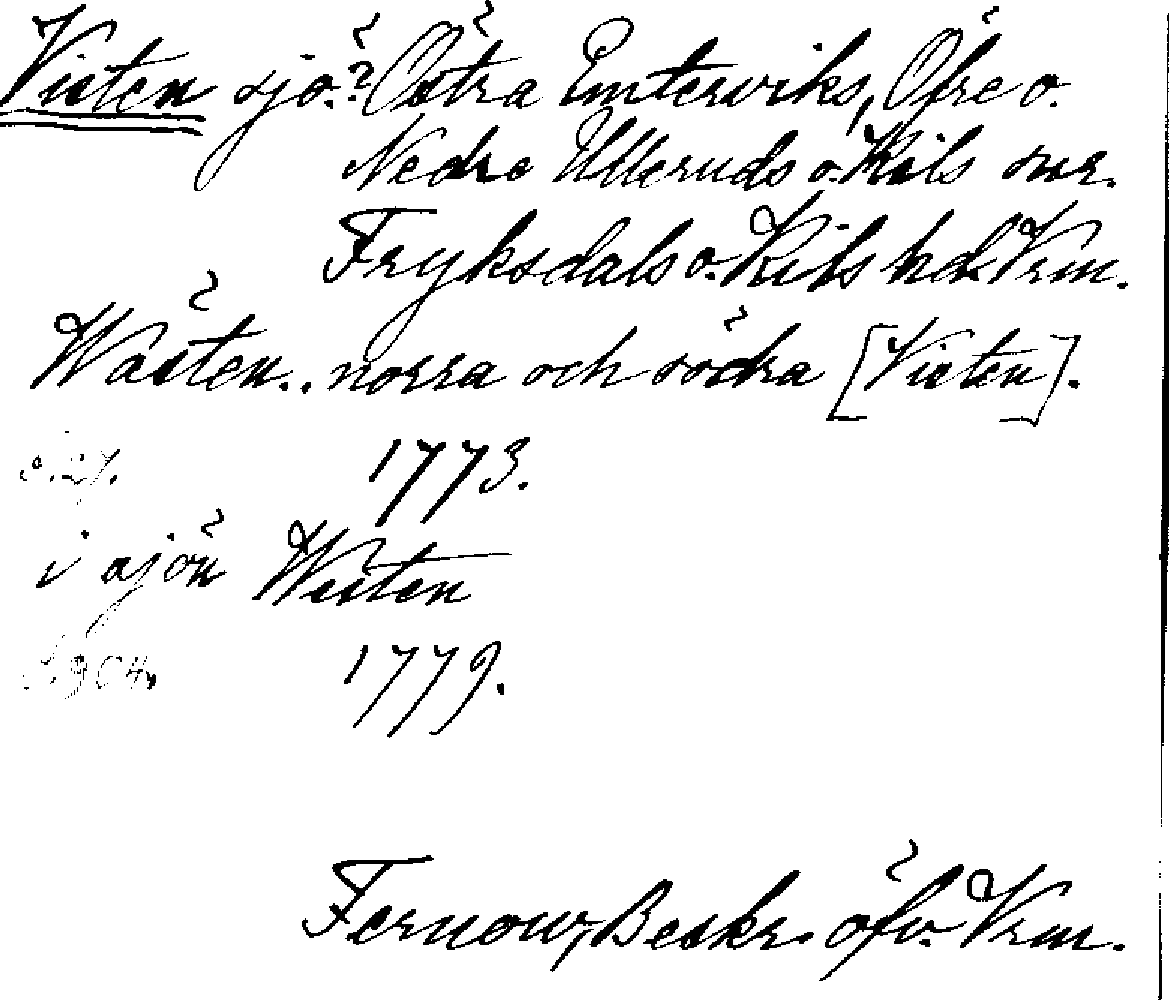 Visten sjö? Östra Emterviks, Öfre o.
Nedre Ulleruds o. Kils snr.
Fryksdals o. Kils hd. Vrm.
Wästen.. norra och södra [Visten].
s. 27. 1773.
i sjön Westen
S. 904. 1779.
Fernow, Beskr. öfv. Vrm.